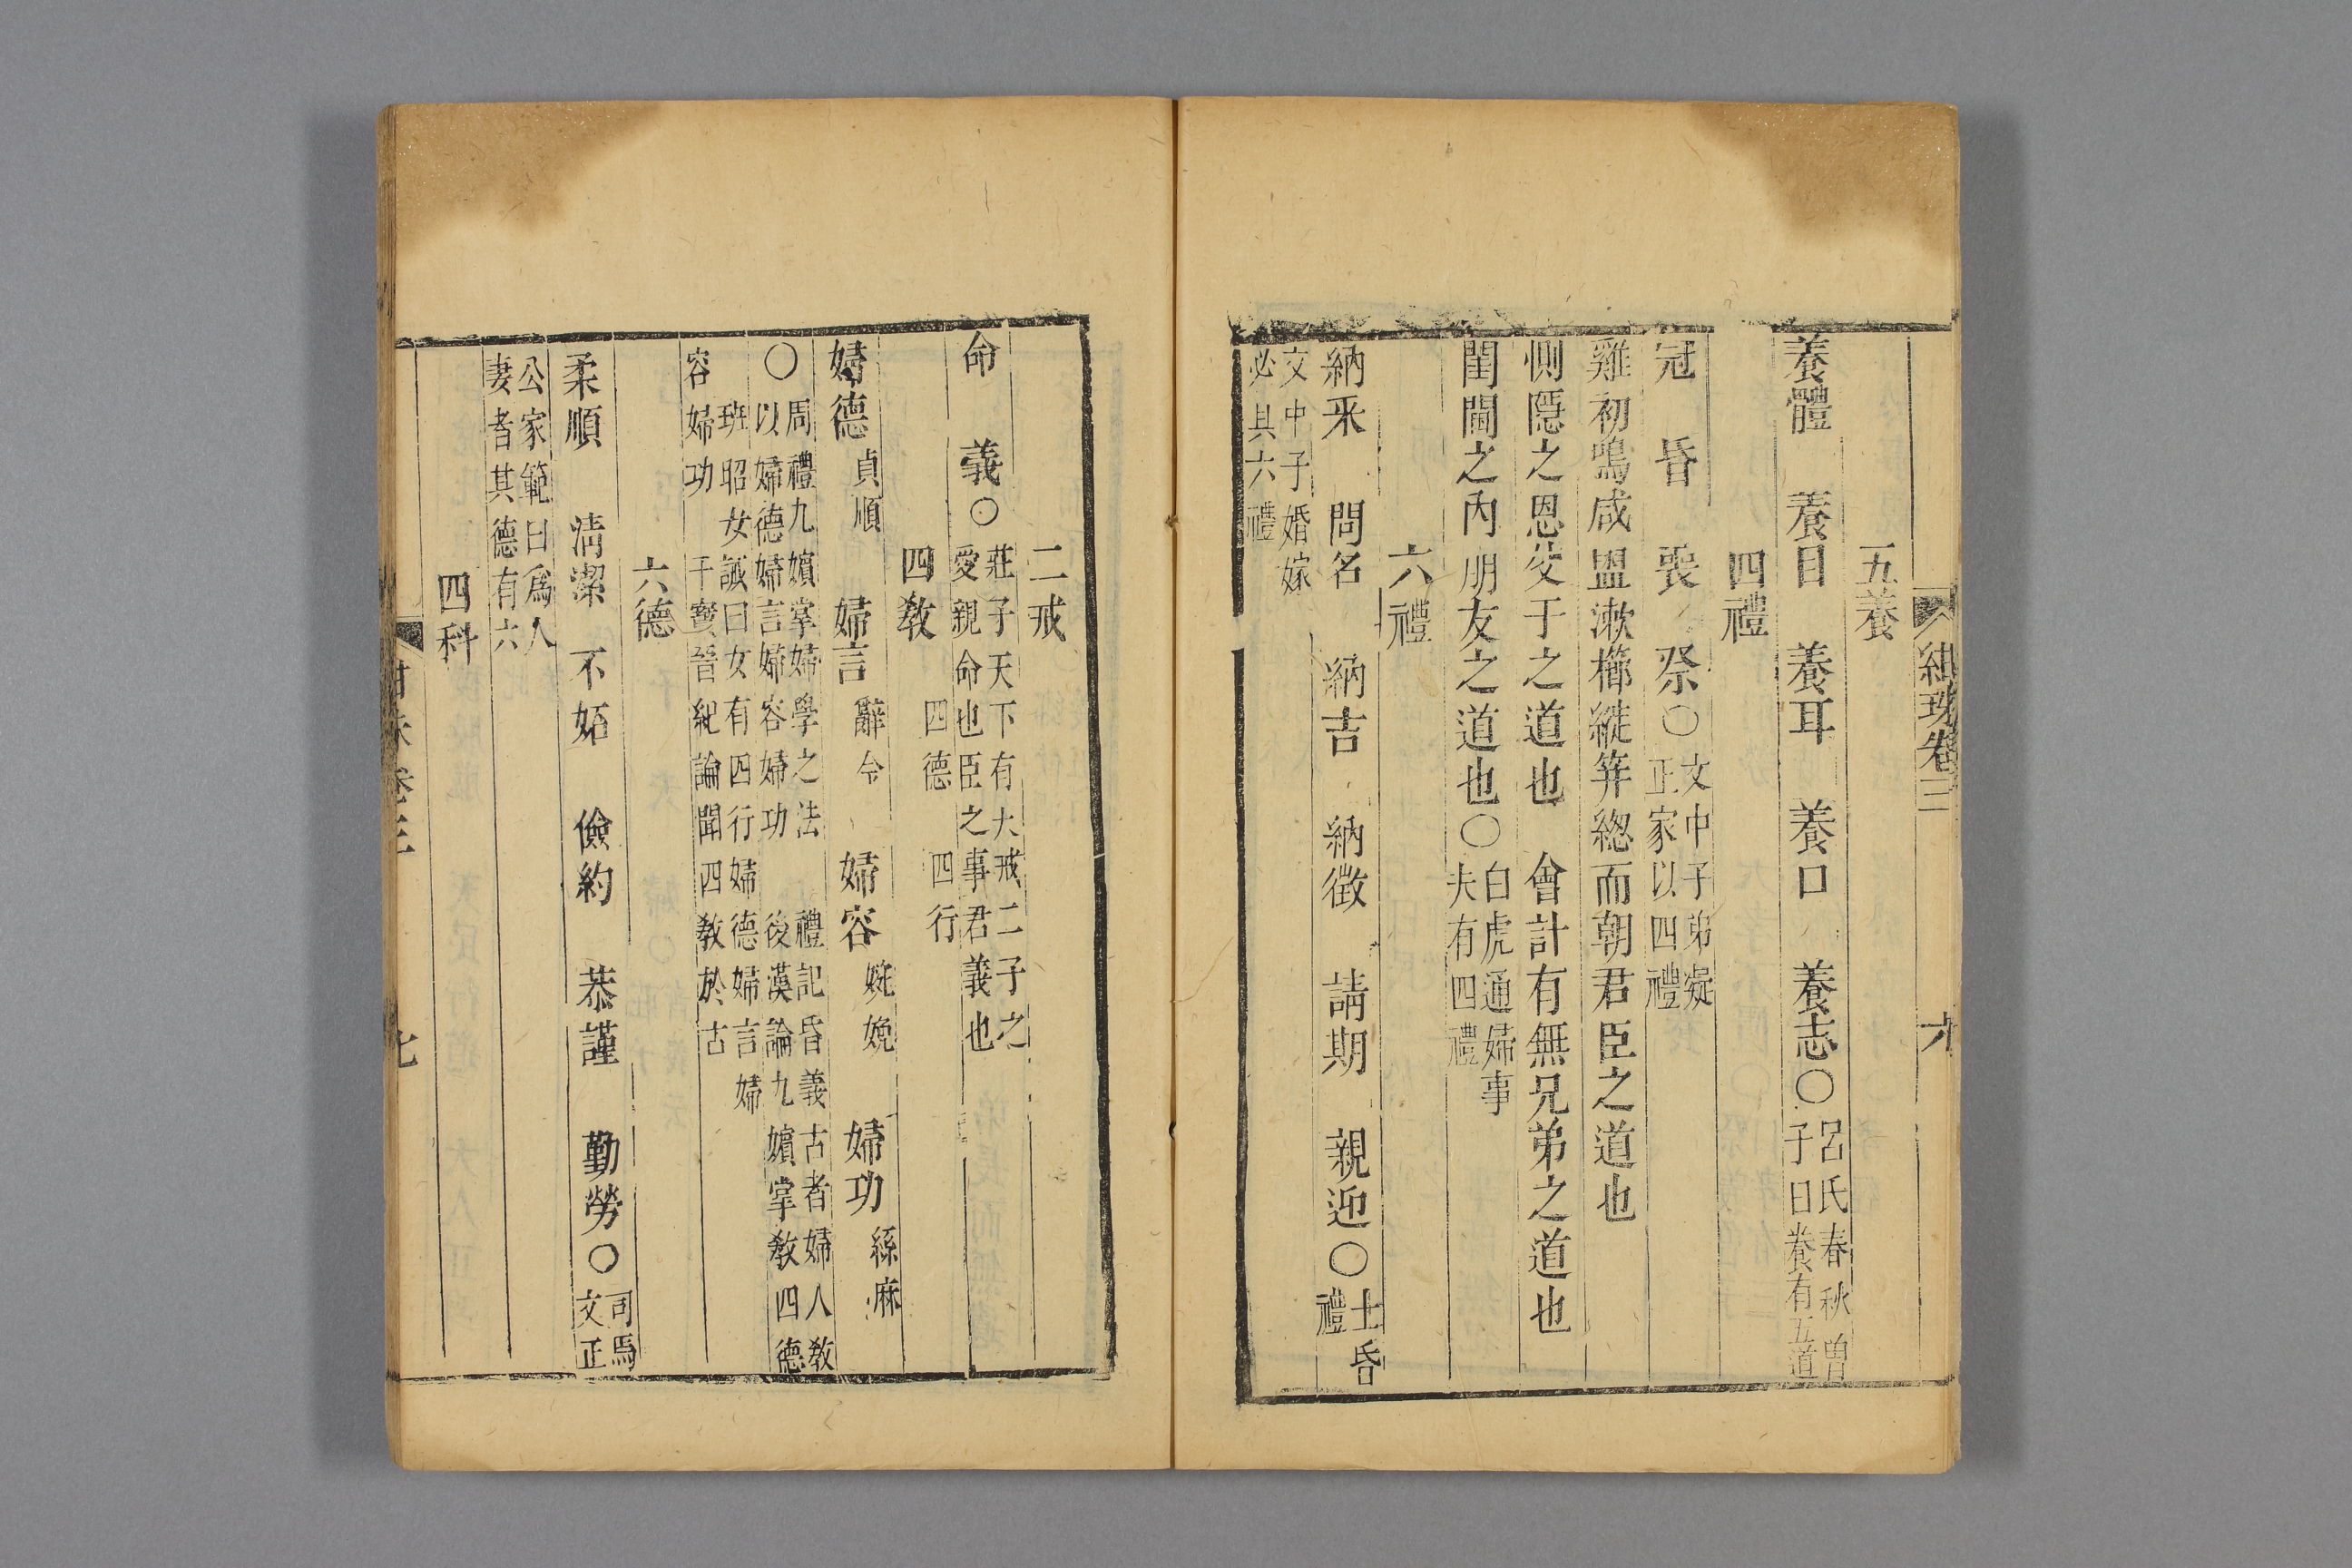 紺珠卷三 六
五養
養體 養目 養耳 養口 養志○呂氏春秋曽
子曰養有五道
四禮
冠 昏 喪 祭○文中子弟凝
正家以四禮
雞初鳴咸盥漱櫛縰筓緫而朝君臣之道也
惻隱之恩父子之道也 會計有無兄弟之道也
閨閫之內朋友之道也○白虎通婦事
夫有四禮
六禮
納采 問名 納吉 納徵 請期 親迎○士昏
禮
文中子婚嫁
必具六禮
二戒
命 義○莊子天下有大戒二子之
愛親命也臣之事君義也
四敎 四德 四行
婦德貞順 婦言辭令 婦容婉娩 婦功絲麻
○周禮九嬪掌婦學之法
以婦德婦言婦容婦功
禮記昏義古者婦人敎
後漢論九嬪掌敎四德
班昭女誡曰女有四行婦德婦言婦
容婦功
干寶晉紀論聞四敎於古
六德
柔順 淸潔 不妬 儉約 恭謹 勤勞○司馬
文正
公家範曰爲人
妻者其德有六
四科
卷三 七